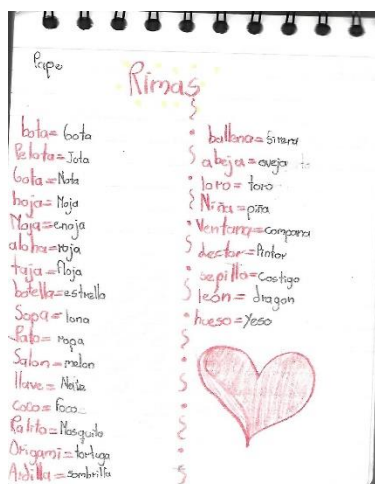 Pape
Rimas
bota = Gota
Pelota = Jota
Gota = Nota
hoja = Moja
Moja = enoja
aloha = roja
taja = floja
botella = estrella
Sopa = lona
Pato = ropa
Salon = melon
llave =
coco = foco
Palito = Mosquito
Origami = tortuga
Ardilla = sombrilla
ballena = Sirena
abeja = oveja
loro = toro
Niña = piña
Ventana = campana
doctor = Pintor
cepillo = Castigo
león = dragon
hueso = Yeso